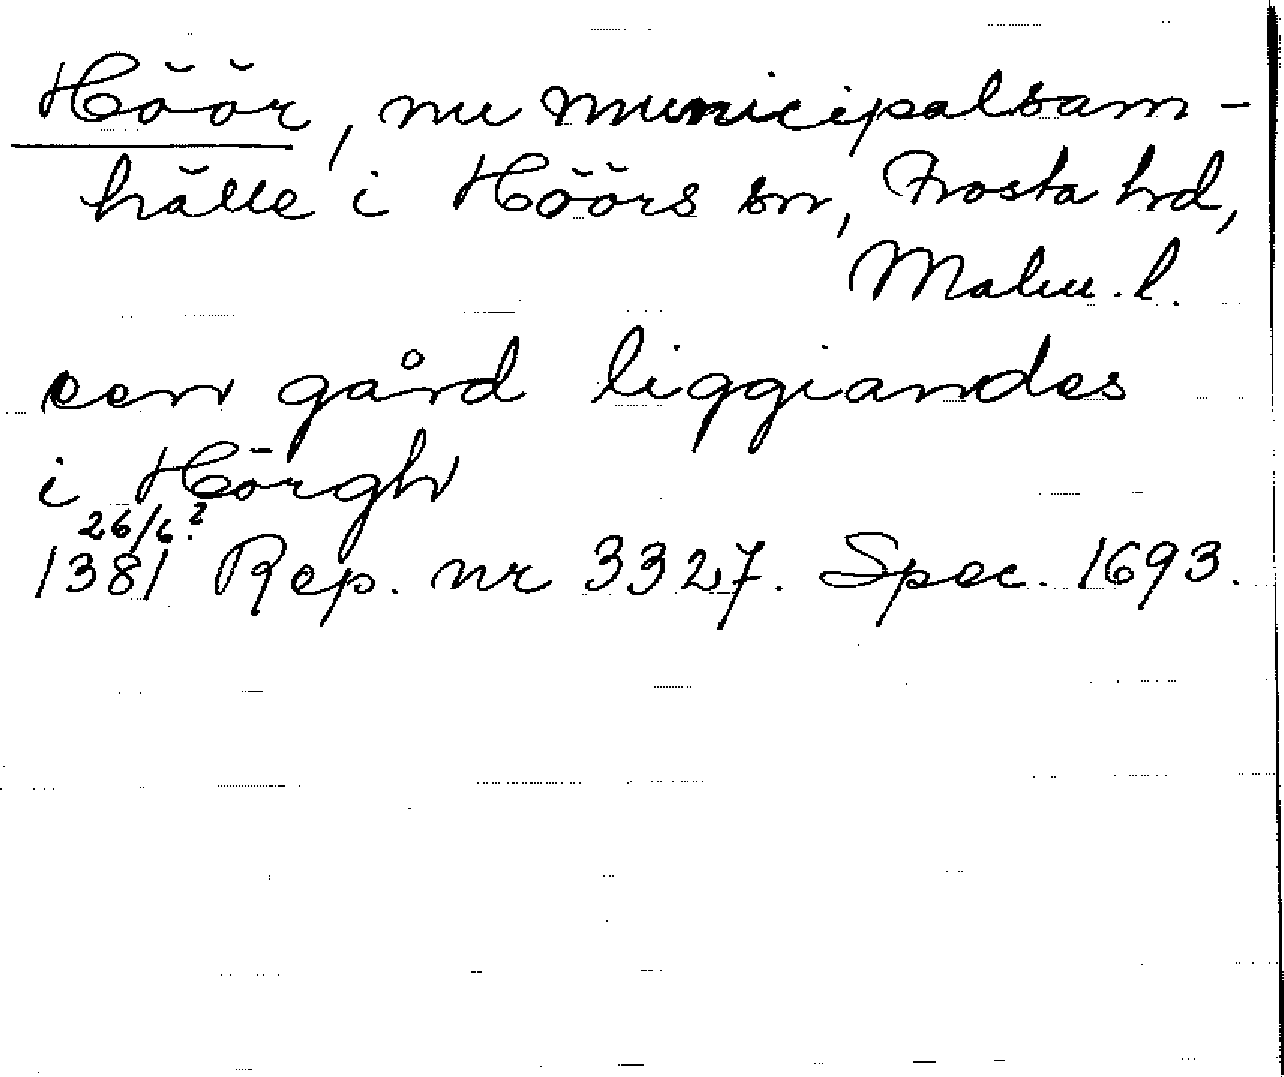 Höör, nu municipalsam-
hälle i Höörs sn, Frosta hd,
Malm. l.
een gård liggiandes
i Hörgh
26/6?
1381 Rep. nr 3327. Spec. 1693.